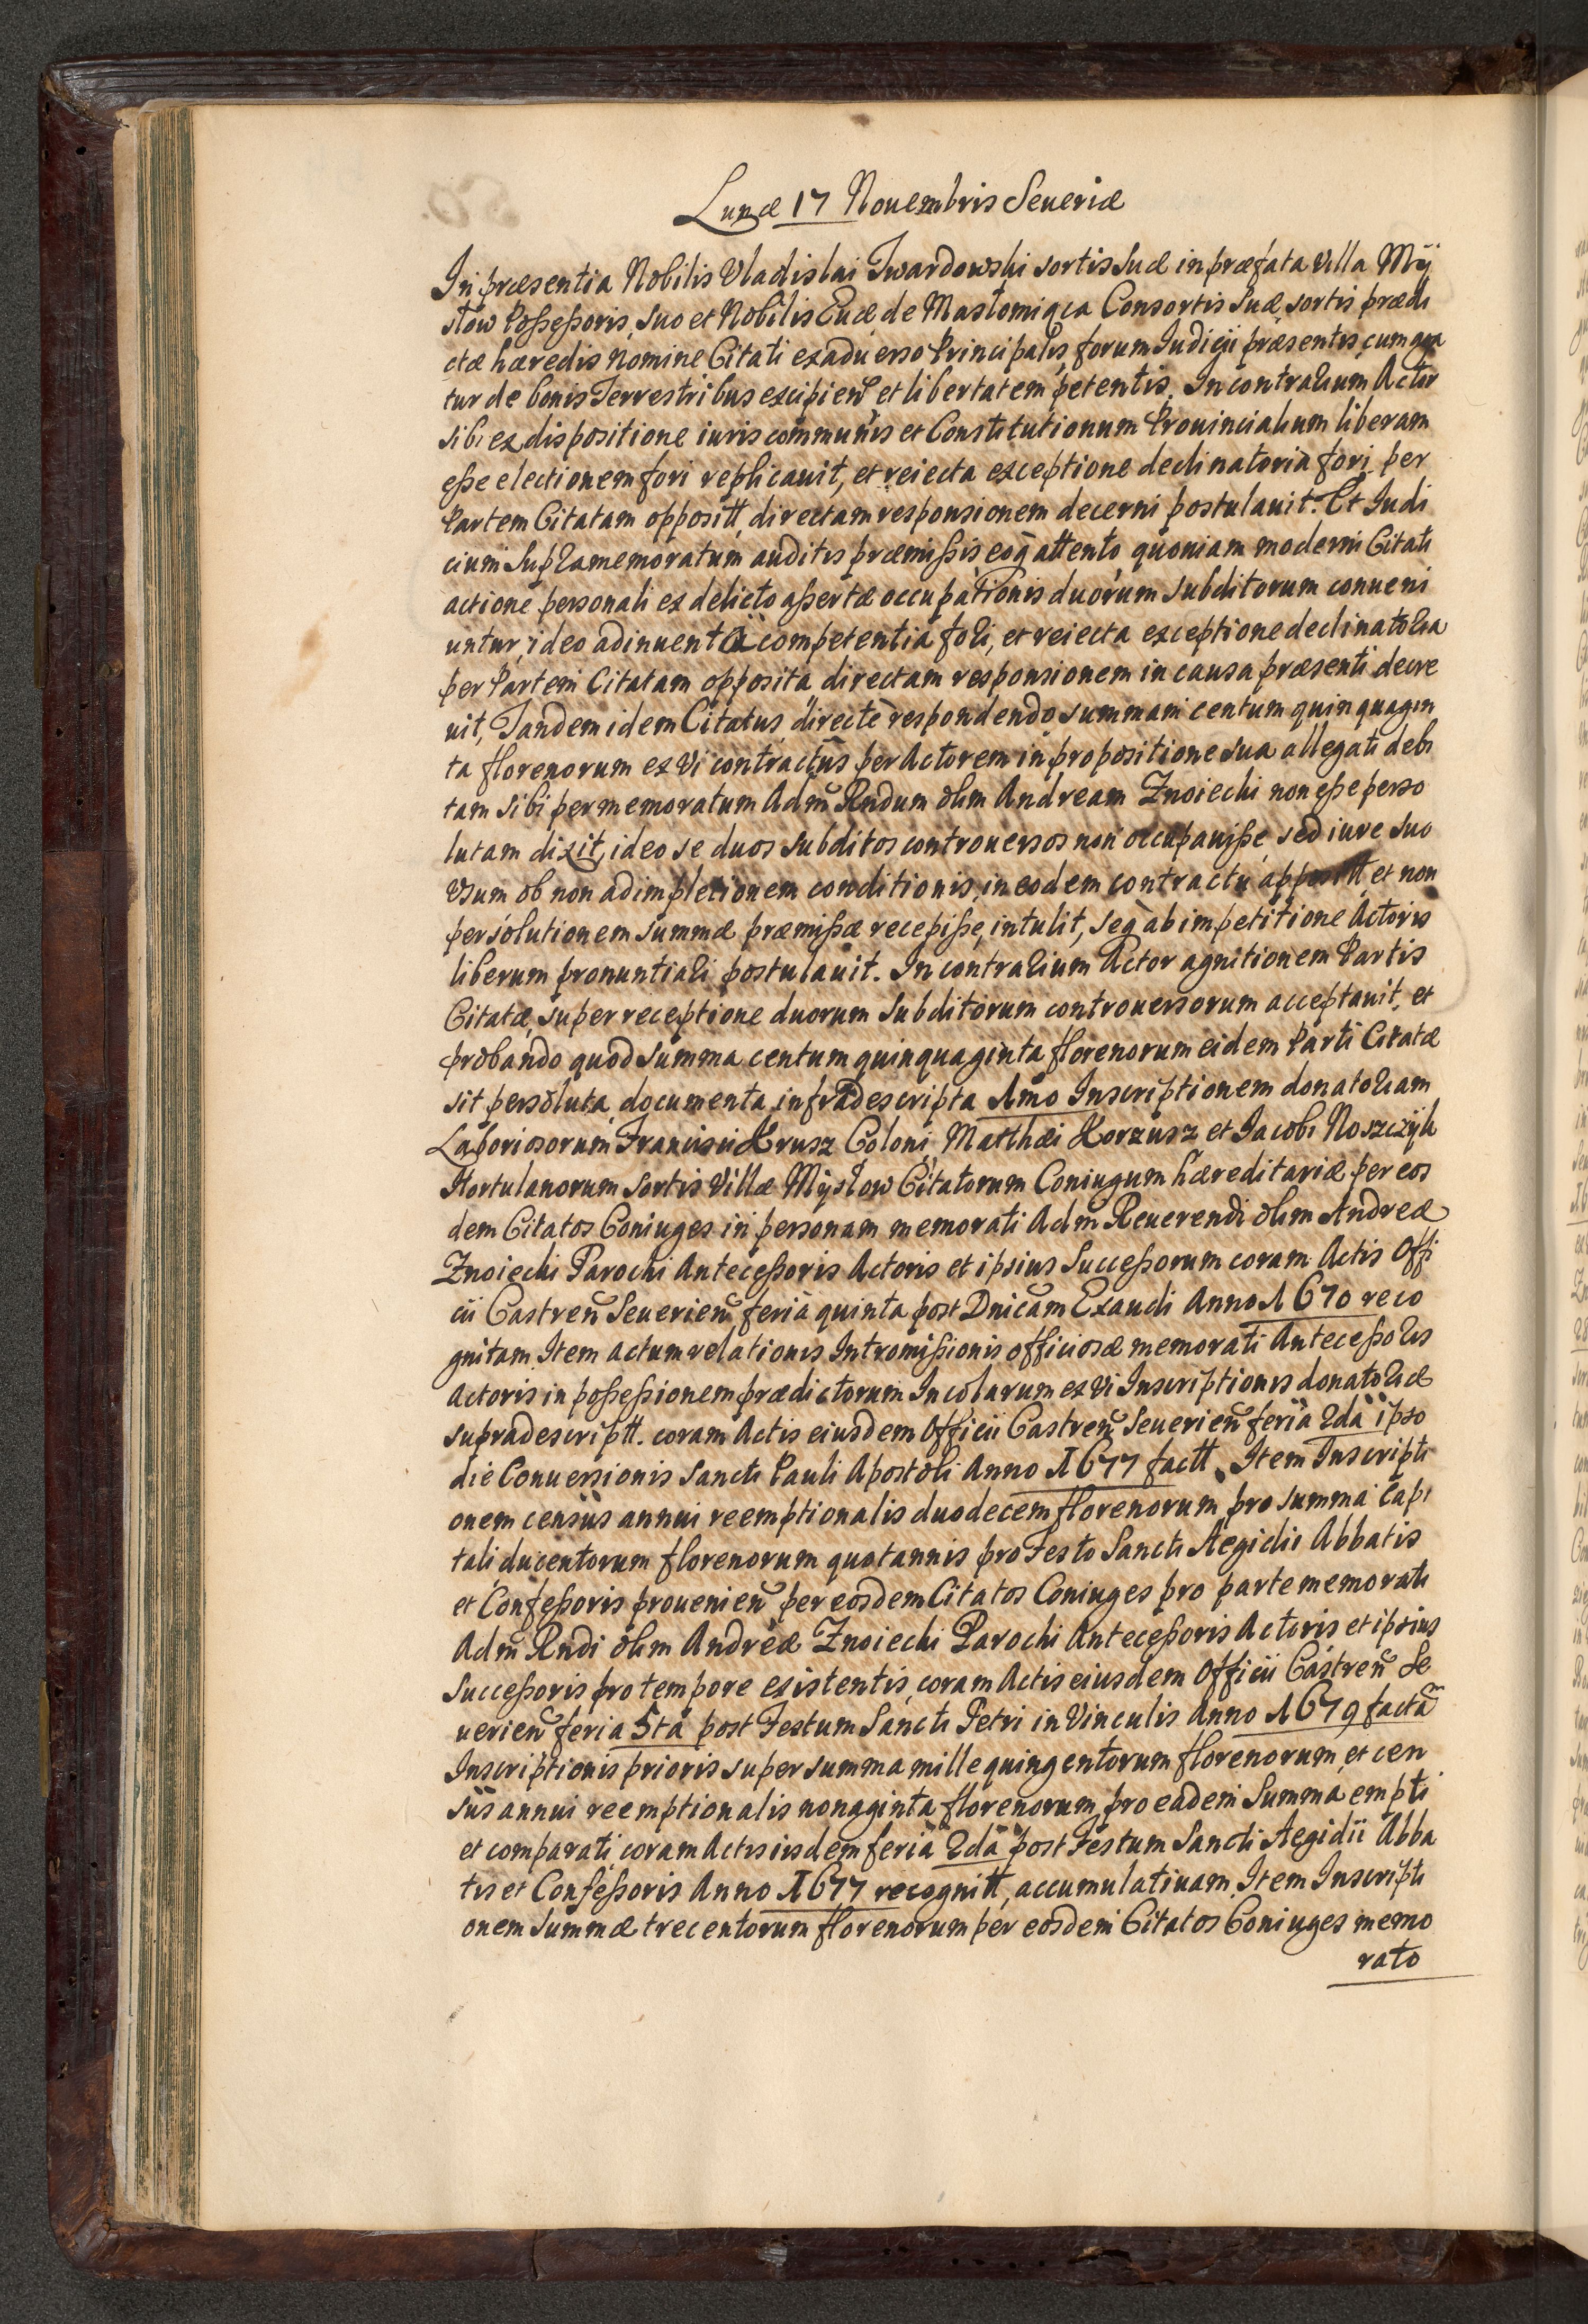 Lunæ 17 Nouembris Seueriæ
In præsentia Nobilis Vladislai Twardowski sortis suæ in præfata villa Mÿ
słow Possessoris, suo et Nobilis Euæ de Mastomiąca Consortis suæ, sortis prædi
ctæ hæredis nomine Citati ex aduerso Principalis, forum Iudicii præsentis, cum aga
tur de bonis Terrestribus excipieñ et libertatem petentis. In contrarium Actor
sibi ex dispositione iuris communis et Constitutionum Prouincialium liberam
esse electionem fori replicauit, et reiecta exceptione declinatoria fori per
Partem Citatam opposittt, directam responsionem decerni postulauit. Et Iudi
cium supramemoratum auditis præmissis eoq̃ attento, quoniam moderni Citati
actione personali ex delicto assertæ occupationis duorum subditorum conueni
untur, ideo adinuentâ competentiâ fori, et reiecta exceptione declinatoria
per Partem Citatam opposita directam responsionem in causa præsenti decre
uit, Tandem idem Citatus directe respondendo summam centum quinquagin
ta florenorum ex vi contractûs per Actorem in propositione sua allegati debi
tam sibi per memoratum Adm̃ Rndum olim Andream Znoiecki non esse perso
lutam dixit, ideo se duos subditos controuersos non occupauisse, sed iure suo
vsum ob non adimpletionem conditionis, in eodem contractu apposittt et non
persolutionem summæ præmissæ recepisse, intulit, seq̃ ab impetitione Actoris
liberum pronuntiari postulauit. In contrarium Actor agnitionem Partis
Citatæ, super receptione duorum subditorum controuersorum acceptauit, et
probando quod summa centum quinquaginta florenorum eidem Parti Citatæ
sit persoluta, documenta infradescripta 1mo Inscriptionem donatoriam
Laboriosorum Francisci Krusz Coloni, Matthæi Korzusz et Iacobi Noszczÿk
Hortulanorum sortis Villæ Mÿsłow Citatorum Coniugum hæreditariæ per eos
dem Citatos Coniuges in personam memorati Adm̃ Reuerendi olim Andreæ
Znoiecki Parochi Antecessoris Actoris et ipsius Successorum coram Actis Offi
cii Castreñ Seuerieñ feria quinta post Dnicam Exaudi Anno 1670 reco
gnitam. Item actum relationis Intromissionis officiosæ memorati Antecessoris
Actoris in possessionem prædictorum Incolarum ex vi Inscriptionis donatoriæ
supradescriptt. coram Actis eiusdem Officii Castreñ Seuerieñ feria 2da ipso
die Conuersionis Sancti Pauli Apostoli Anno 1677 factt. Item Inscripti
onem censûs annui reemptionalis duodecem florenorum pro summa capi
tali ducentorum florenorum quotannis pro Festo Sancti Aegidii Abbatis
et Confessoris prouenieñ per eosdem Citatos Coniuges pro parte memorati
Adm̃ Rndi olim Andreæ Znoiecki Parochi Antecessoris Actoris et ipsius
Successoris pro tempore existentis, coram Actis eiusdem Officii Castreñ Se
uerieñ feria 5ta post Festum Sancti Petri in Vinculis Anno 1679 factã
Inscriptionis prioris super summa mille quingentorum florenorum, et cen
sûs annui reemptionalis nonaginta florenorum pro eadem Summa empti
et comparati coram Actis iisdem feria 2da post Festum Sancti Aegidii Abba
tis et Confessoris Anno 1677 recognittt, accumulatiuam. Item Inscripti
onem summæ trecentorum florenorum per eosdem Citatos Coniuges memo
rato